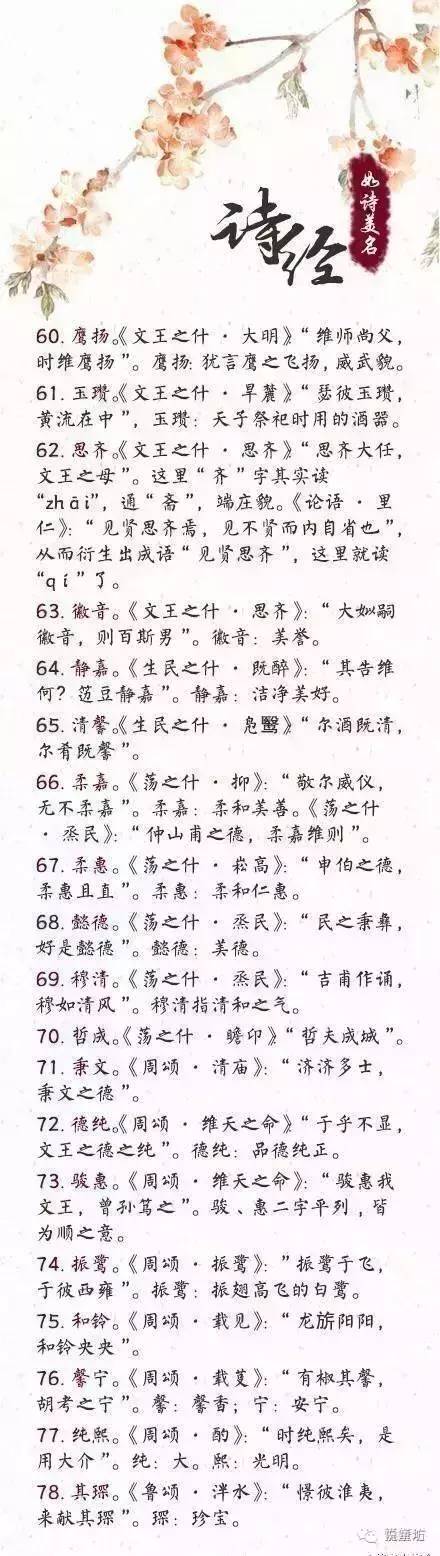 诗经
如诗美名
60. 鹰扬。《文王之什 · 大明》“维师尚父，
时维鹰扬”。鹰扬：犹言鹰之飞扬，威武貌。
61. 玉瓒。《文王之什 · 旱麓》“瑟彼玉瓒，
黄流在中”，玉瓒：天子祭祀时用的酒器。
62. 思齐。《文王之什 · 思齐》“思齐大任，
文王之母”。这里“齐”字其实读
“zhāi”，通“斋”，端庄貌。《论语 · 里
仁》：“见贤思齐焉，见不贤而内自省也”，
从而衍生出成语“见贤思齐”，这里就读
“qí”了。
63. 徽音。《文王之什 · 思齐》：“大姒嗣
徽音，则百斯男”。徽音：美誉。
64. 静嘉。《生民之什 · 既醉》：“其告维
何？笾豆静嘉”。静嘉：洁净美好。
65. 清馨。《生民之什 · 凫鹥》：“尔酒既清，
尔肴既馨”。
66. 柔嘉。《荡之什 · 抑》：“敬尔威仪，
无不柔嘉”。柔嘉：柔和美善。《荡之什
· 烝民》：“仲山甫之德，柔嘉维则”。
67. 柔惠。《荡之什 · 崧高》：“申伯之德，
柔惠且直”。柔惠：柔和仁惠。
68. 懿德。《荡之什 · 烝民》：“民之秉彝，
好是懿德”。懿德：美德。
69. 穆清。《荡之什 · 烝民》：“吉甫作诵，
穆如清风”。穆清指清和之气。
70. 哲成。《荡之什 · 瞻卬》“哲夫成城”。
71. 秉文。《周颂 · 清庙》：“济济多士，
秉文之德”。
72. 德纯。《周颂 · 维天之命》“于乎不显，
文王之德之纯”。德纯：品德纯正。
73. 骏惠。《周颂 · 维天之命》：“骏惠我
文王，曾孙笃之”。骏、惠二字平列，皆
为顺之意。
74. 振鹭。《周颂 · 振鹭》：“振鹭于飞，
于彼西雍”。振鹭：振翅高飞的白鹭。
75. 和铃。《周颂 · 载见》：“龙旂阳阳，
和铃央央”。
76. 馨宁。《周颂 · 载芟》：“有椒其馨，
胡考之宁”。馨：馨香；宁：安宁。
77. 纯熙。《周颂 · 酌》：“时纯熙矣，是
用大介”。纯：大。熙：光明。
78. 其琛。《鲁颂 · 泮水》：“憬彼淮夷，
来献其琛”。琛：珍宝。